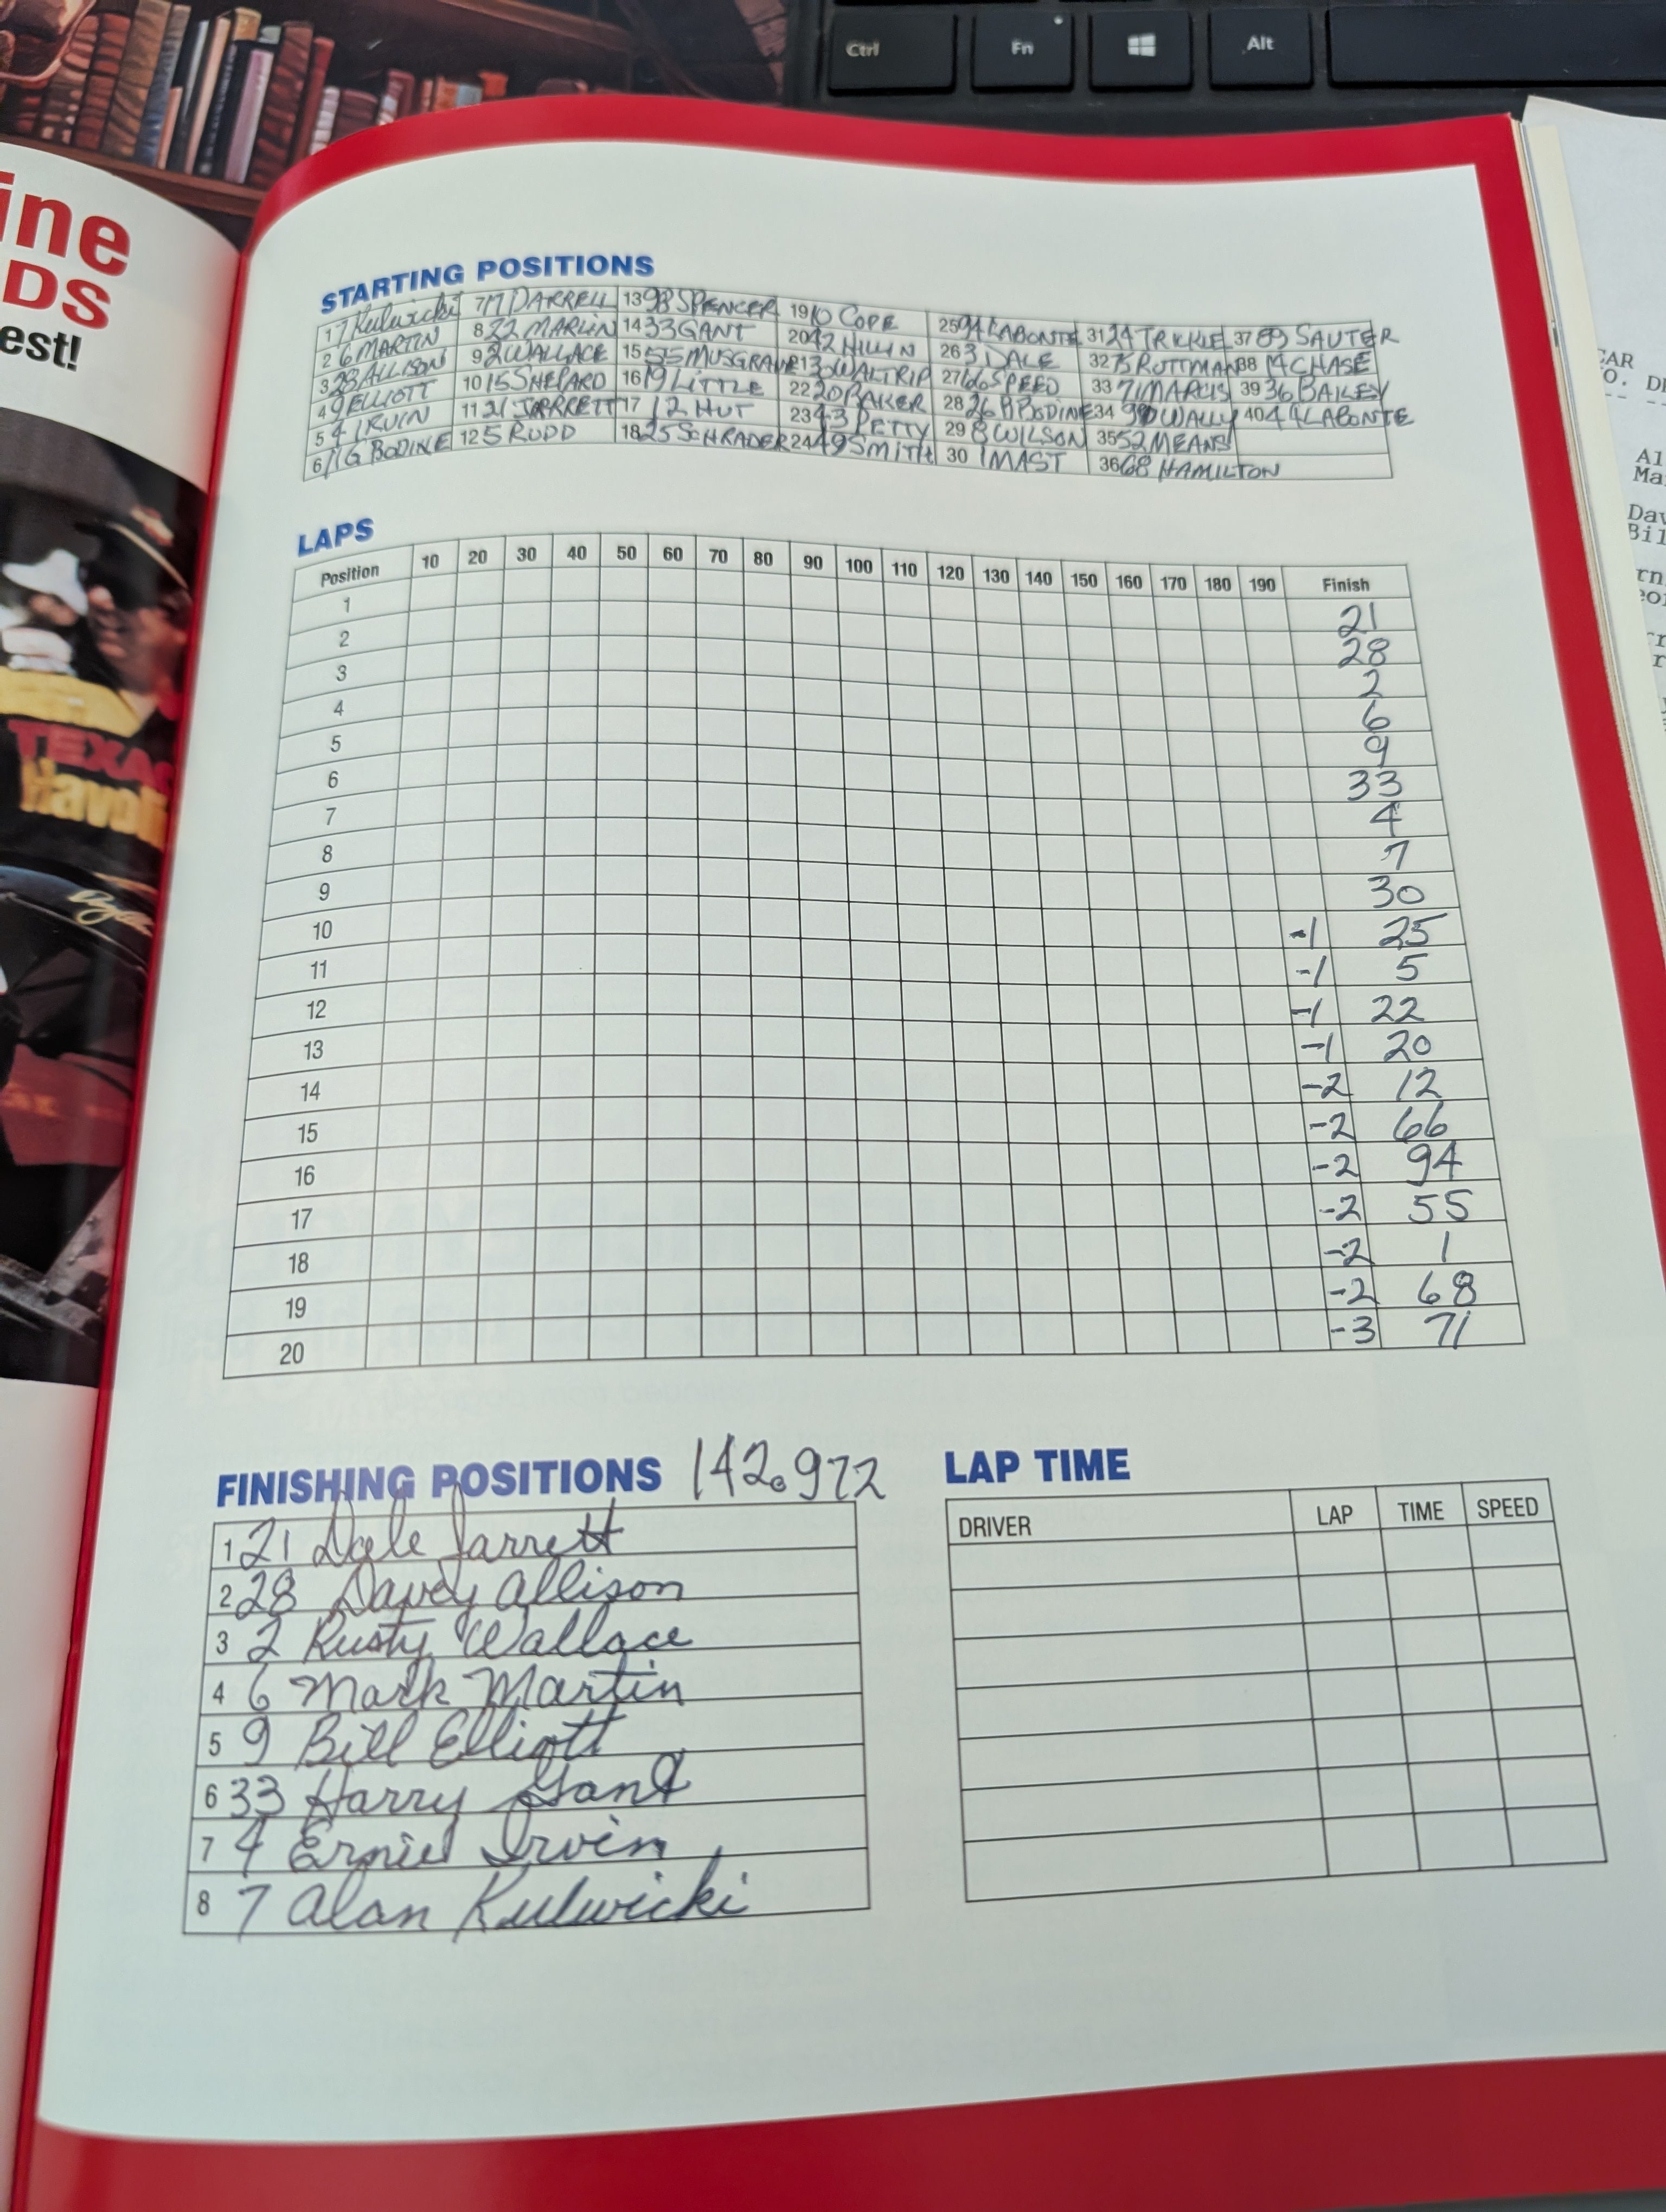 Ctrl Fn Alt
ine
DS
est!
TEXA
Havol
STARTING POSITIONS
1 7 Kulwicki 7 17 DARRELL 13 98 SPENCER 19 10 COPE 25 94 LABONTE 31 24 TRICKLE 37 89 SAUTER
2 6 MARTIN 8 22 MARLIN 14 33 GANT 20 42 HILLIN 26 3 DALE 32 75 RUTTMAN 38 14 CHASE
3 28 ALLISON 9 2 WALLACE 15 55 MUSGRAVE 21 30 WALTRIP 27 66 SPEED 33 71 MARCIS 39 36 BAILEY
4 9 ELLIOTT 10 15 SHEPARD 16 19 LITTLE 22 20 BAKER 28 26 B BODINE 34 90 WALLY 40 44 LABONTE
5 4 IRVIN 11 21 JARRETT 17 12 HUT 23 43 PETTY 29 8 WILSON 35 52 MEANS
6 11 G BODINE 12 5 RUDD 18 25 SCHRADER 24 49 SMITH 30 1 MAST 36 68 HAMILTON
LAPS
Position 10 20 30 40 50 60 70 80 90 100 110 120 130 140 150 160 170 180 190 Finish
1 21
2 28
3 2
4 6
5 9
6 33
7 4
8 7
9 30
10 -1 25
11 -1 5
12 -1 22
13 -1 20
14 -2 12
15 -2 66
16 -2 94
17 -2 55
18 -2 1
19 -2 68
20 -3 71
FINISHING POSITIONS 142.972
1 21 Dale Jarrett
2 28 Davey Allison
3 2 Rusty Wallace
4 6 Mark Martin
5 9 Bill Elliott
6 33 Harry Gant
7 4 Ernie Irvin
8 7 Alan Kulwicki
LAP TIME
DRIVER LAP TIME SPEED
CAR
O. D
Al
Ma
Dav
Bil
rn